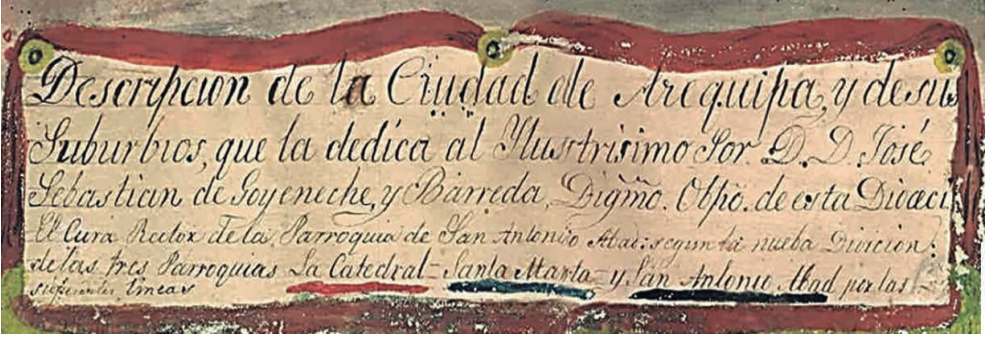 Descripcion de la Ciudad de Arequipa, y de sus
Suburbios, que la dedica al Ylustrisimo Sor. D. D. José
Sebastian de Goyeneche, y Barreda, Digmo. Obpo. de esta Dioaci
El Cura Rector de la Parroquia de San Antonio Abad: segun la nueba Divicion:
de las tres Parroquias La Catedral - Santa Marta - y San Antonio Abad por las
siguientes lineas